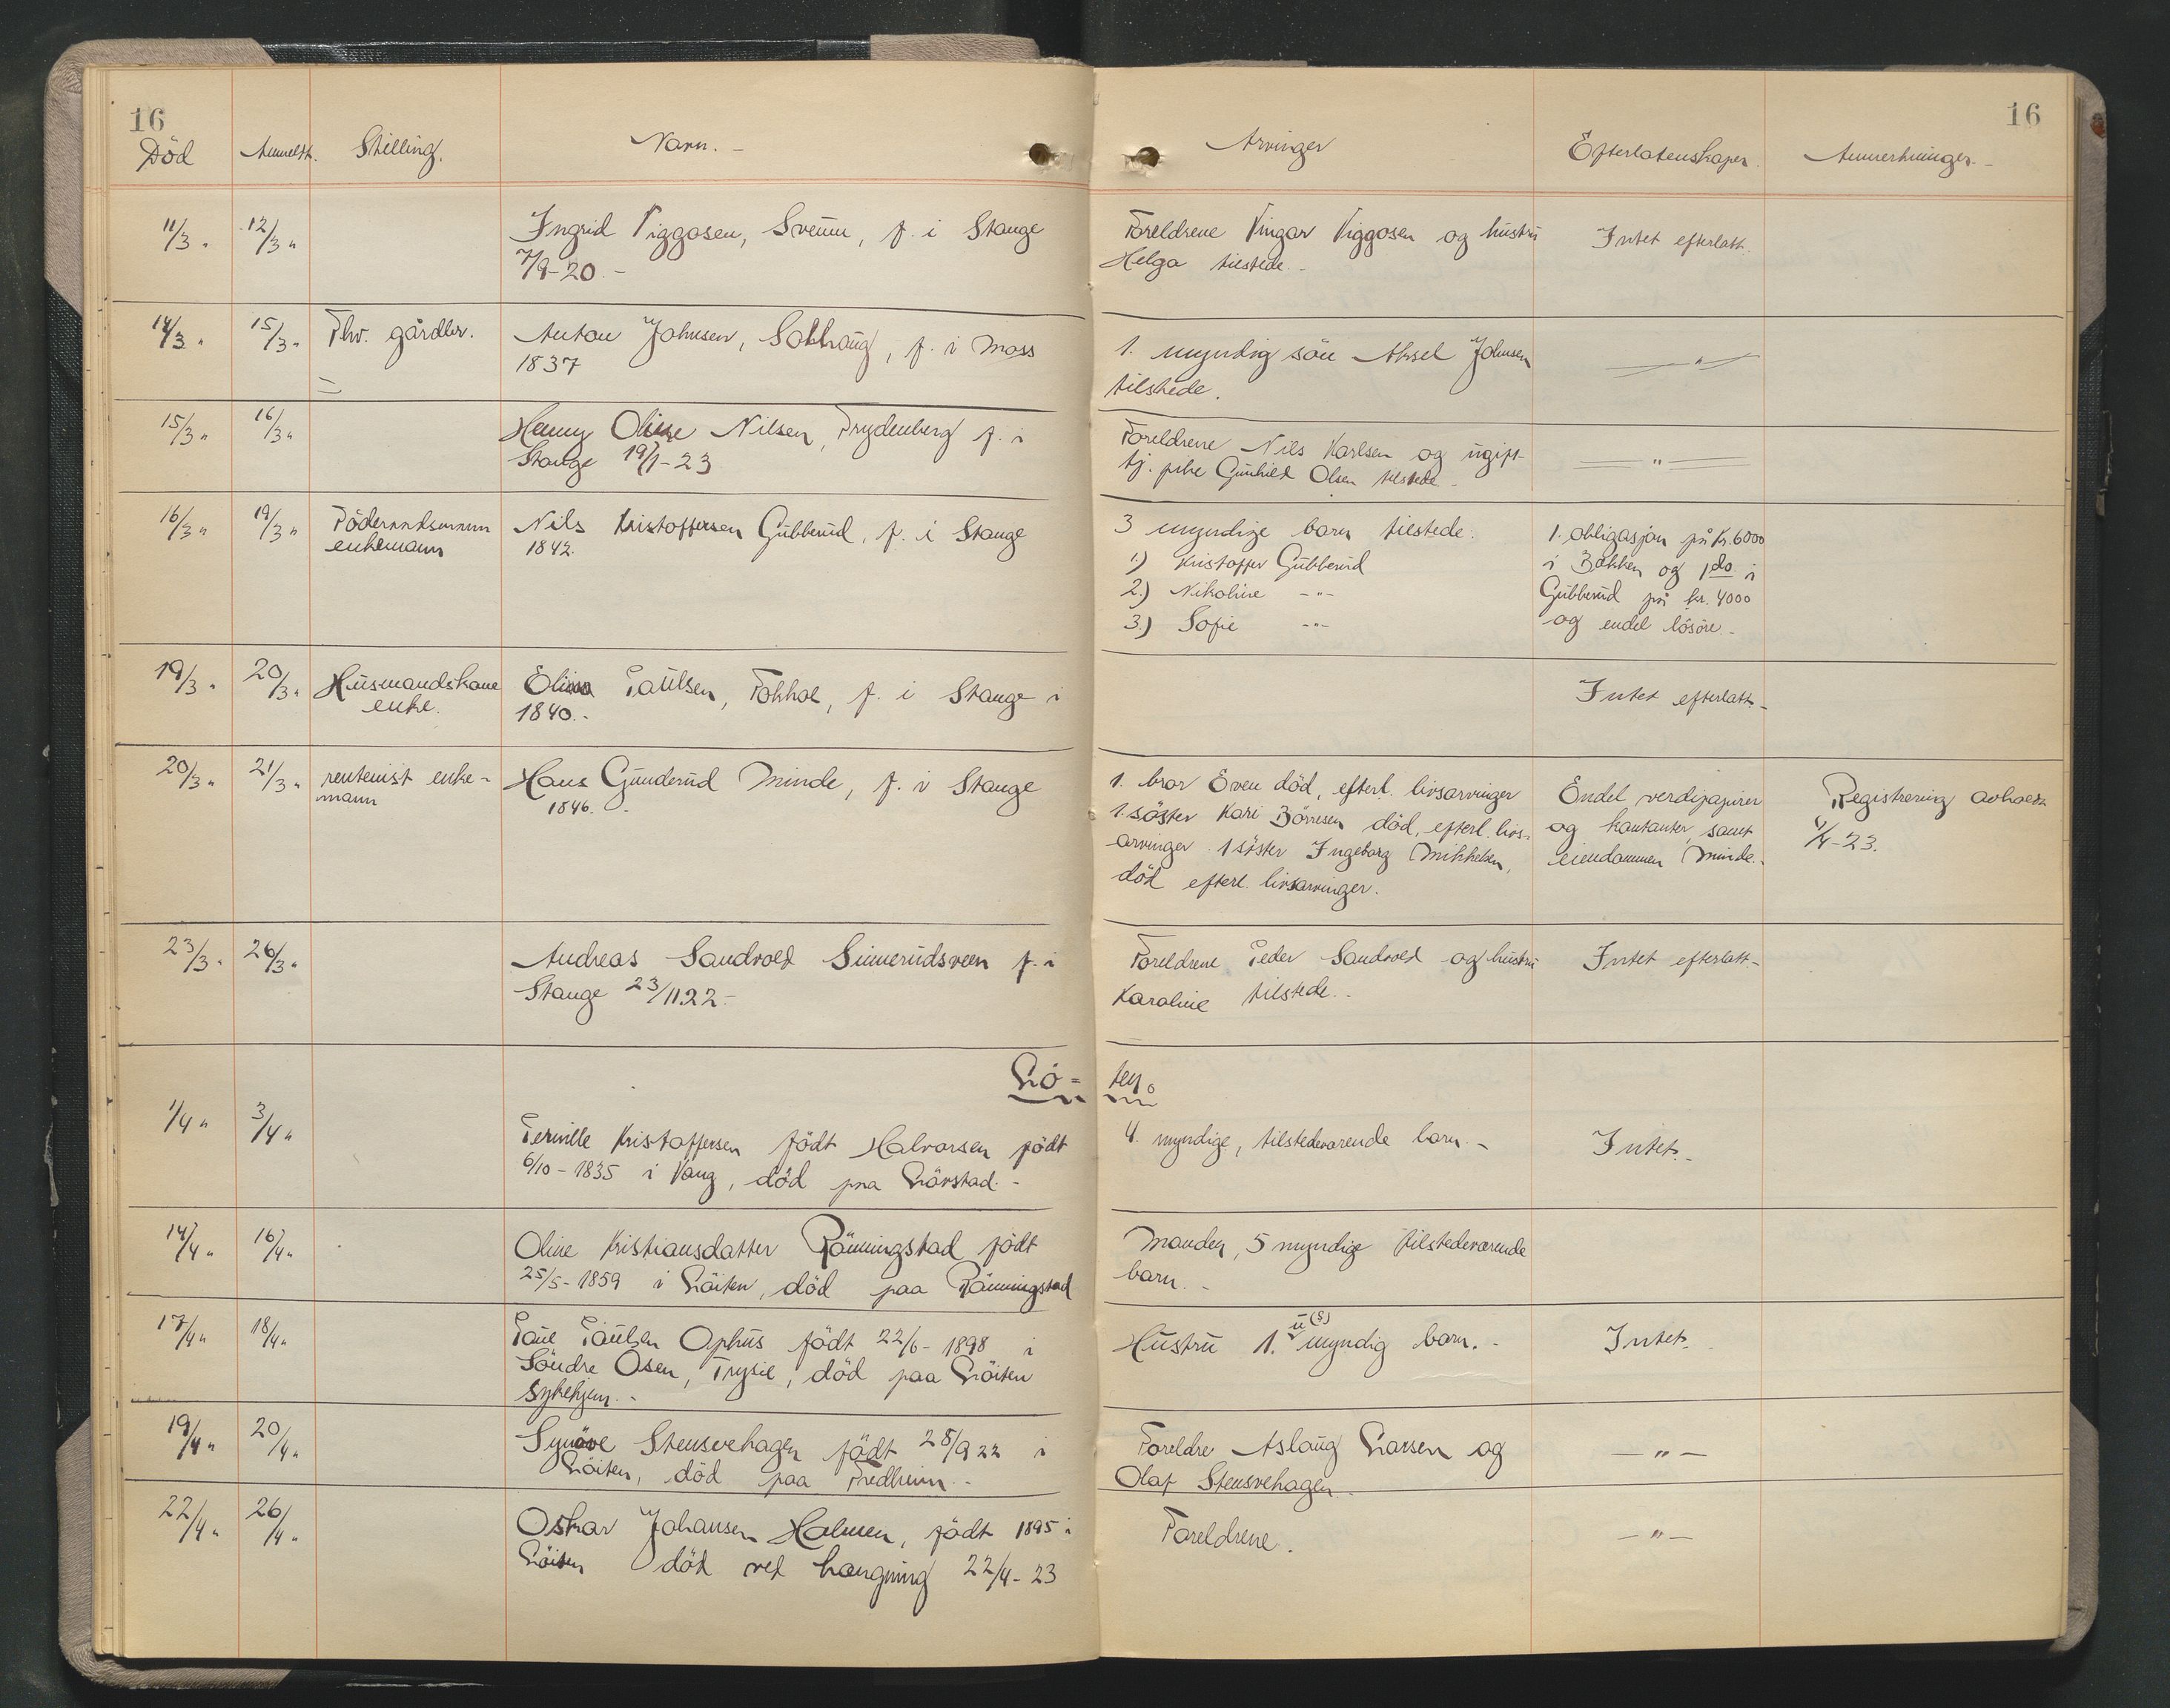 16
Död Anmeldt. Stilling. Navn. -
11/3 " 12/3 " Ingrid Viggosen, Sveum, f. i Stange
7/9-20. -
14/3 " 15/3 " Fhv. gårdbr. Anton Johnsen, Solhaug, f. i Moss
1837
15/3 " 16/3 " Henny Oline Nilsen, Frydenberg f. i
Stange 19/1-23
16/3 " 19/3 " Föderaadsmann Nils Kristoffersen Gubberud, f. i Stange
enkemann 1842.
19/3 " 20/3 " Husmandskone Elina Paulsen, Fokhol, f. i Stange i
enke. 1840. -
20/3 " 21/3 " rentenist enke- Hans Gunderud Minde, f. i Stange
mann 1846. -
23/3 " 26/3 " Andreas Sandvold Simerudsveen f. i
Stange 23/11 22 -
Lö-
1/4 " 3/4 "
Pernille Kristoffersen födt Halvorsen födt
6/10-1835 i Vang, död paa Lörstad. -
14/4 " 16/4 " Oline Kristiansdatter Rönningstad födt
25/5-1859 i Löiten, död paa Rönningstad
17/4 " 18/4 " Paul Paulsen Ophus födt 22/6-1898 i
Söndre Osen, Trysil, död paa Löiten
Sykehjem. -
19/4 " 20/4 " Synöve Stensvehagen födt 28/9 22 i
Löiten, död paa Fredheim. -
22/4 " 26/4 " Oskar Johansen Holmen, födt 1895 i
Löiten död ved hangning 22/4-23
16
Arvinger Efterlatenskaper. Anmerkninger. -
Foreldrene Vingar Viggosen og hustru Intet efterlatt.
Helga tilstede. -
1. myndig sön Aksel Johnsen — " —
tilstede.
Foreldrene Nils Karlsen og ugift — " —
tj. pike Gunhild Olsen tilstede -
3 myndige barn tilstede. 1. obligasjon på kr. 6000
1.) Kristoffer Gubberud i Bakken og 1 do. i
2.) Nikoline -"- Gubberud på kr. 4000
3.) Sofie -"- og endel lösöre. -
Intet efterlatt. -
1. bror Even död, efterl. livsarvinger Endel verdipapirer Registrering avholdt
1. söster Kari Börresen död, efterl. livs- og kontanter, samt 4/4-23.
arvinger. 1 söster Ingeborg Mikkelsen, eiendommen Minde. -
död efterl. livsarvinger.
Foreldrene Peder Sandvold og hustru Intet efterlatt. -
Karoline tilstede. -
ten.
4. myndige, tilstedevarende barn. - Intet. -
Manden, 5 myndige tilstedeværende
barn. -
u (3)
Hustru 1. myndig barn. - Intet. -
Foreldre Aslaug Larsen og — " —
Olaf Stensvehagen. -
Foreldrene. — " —